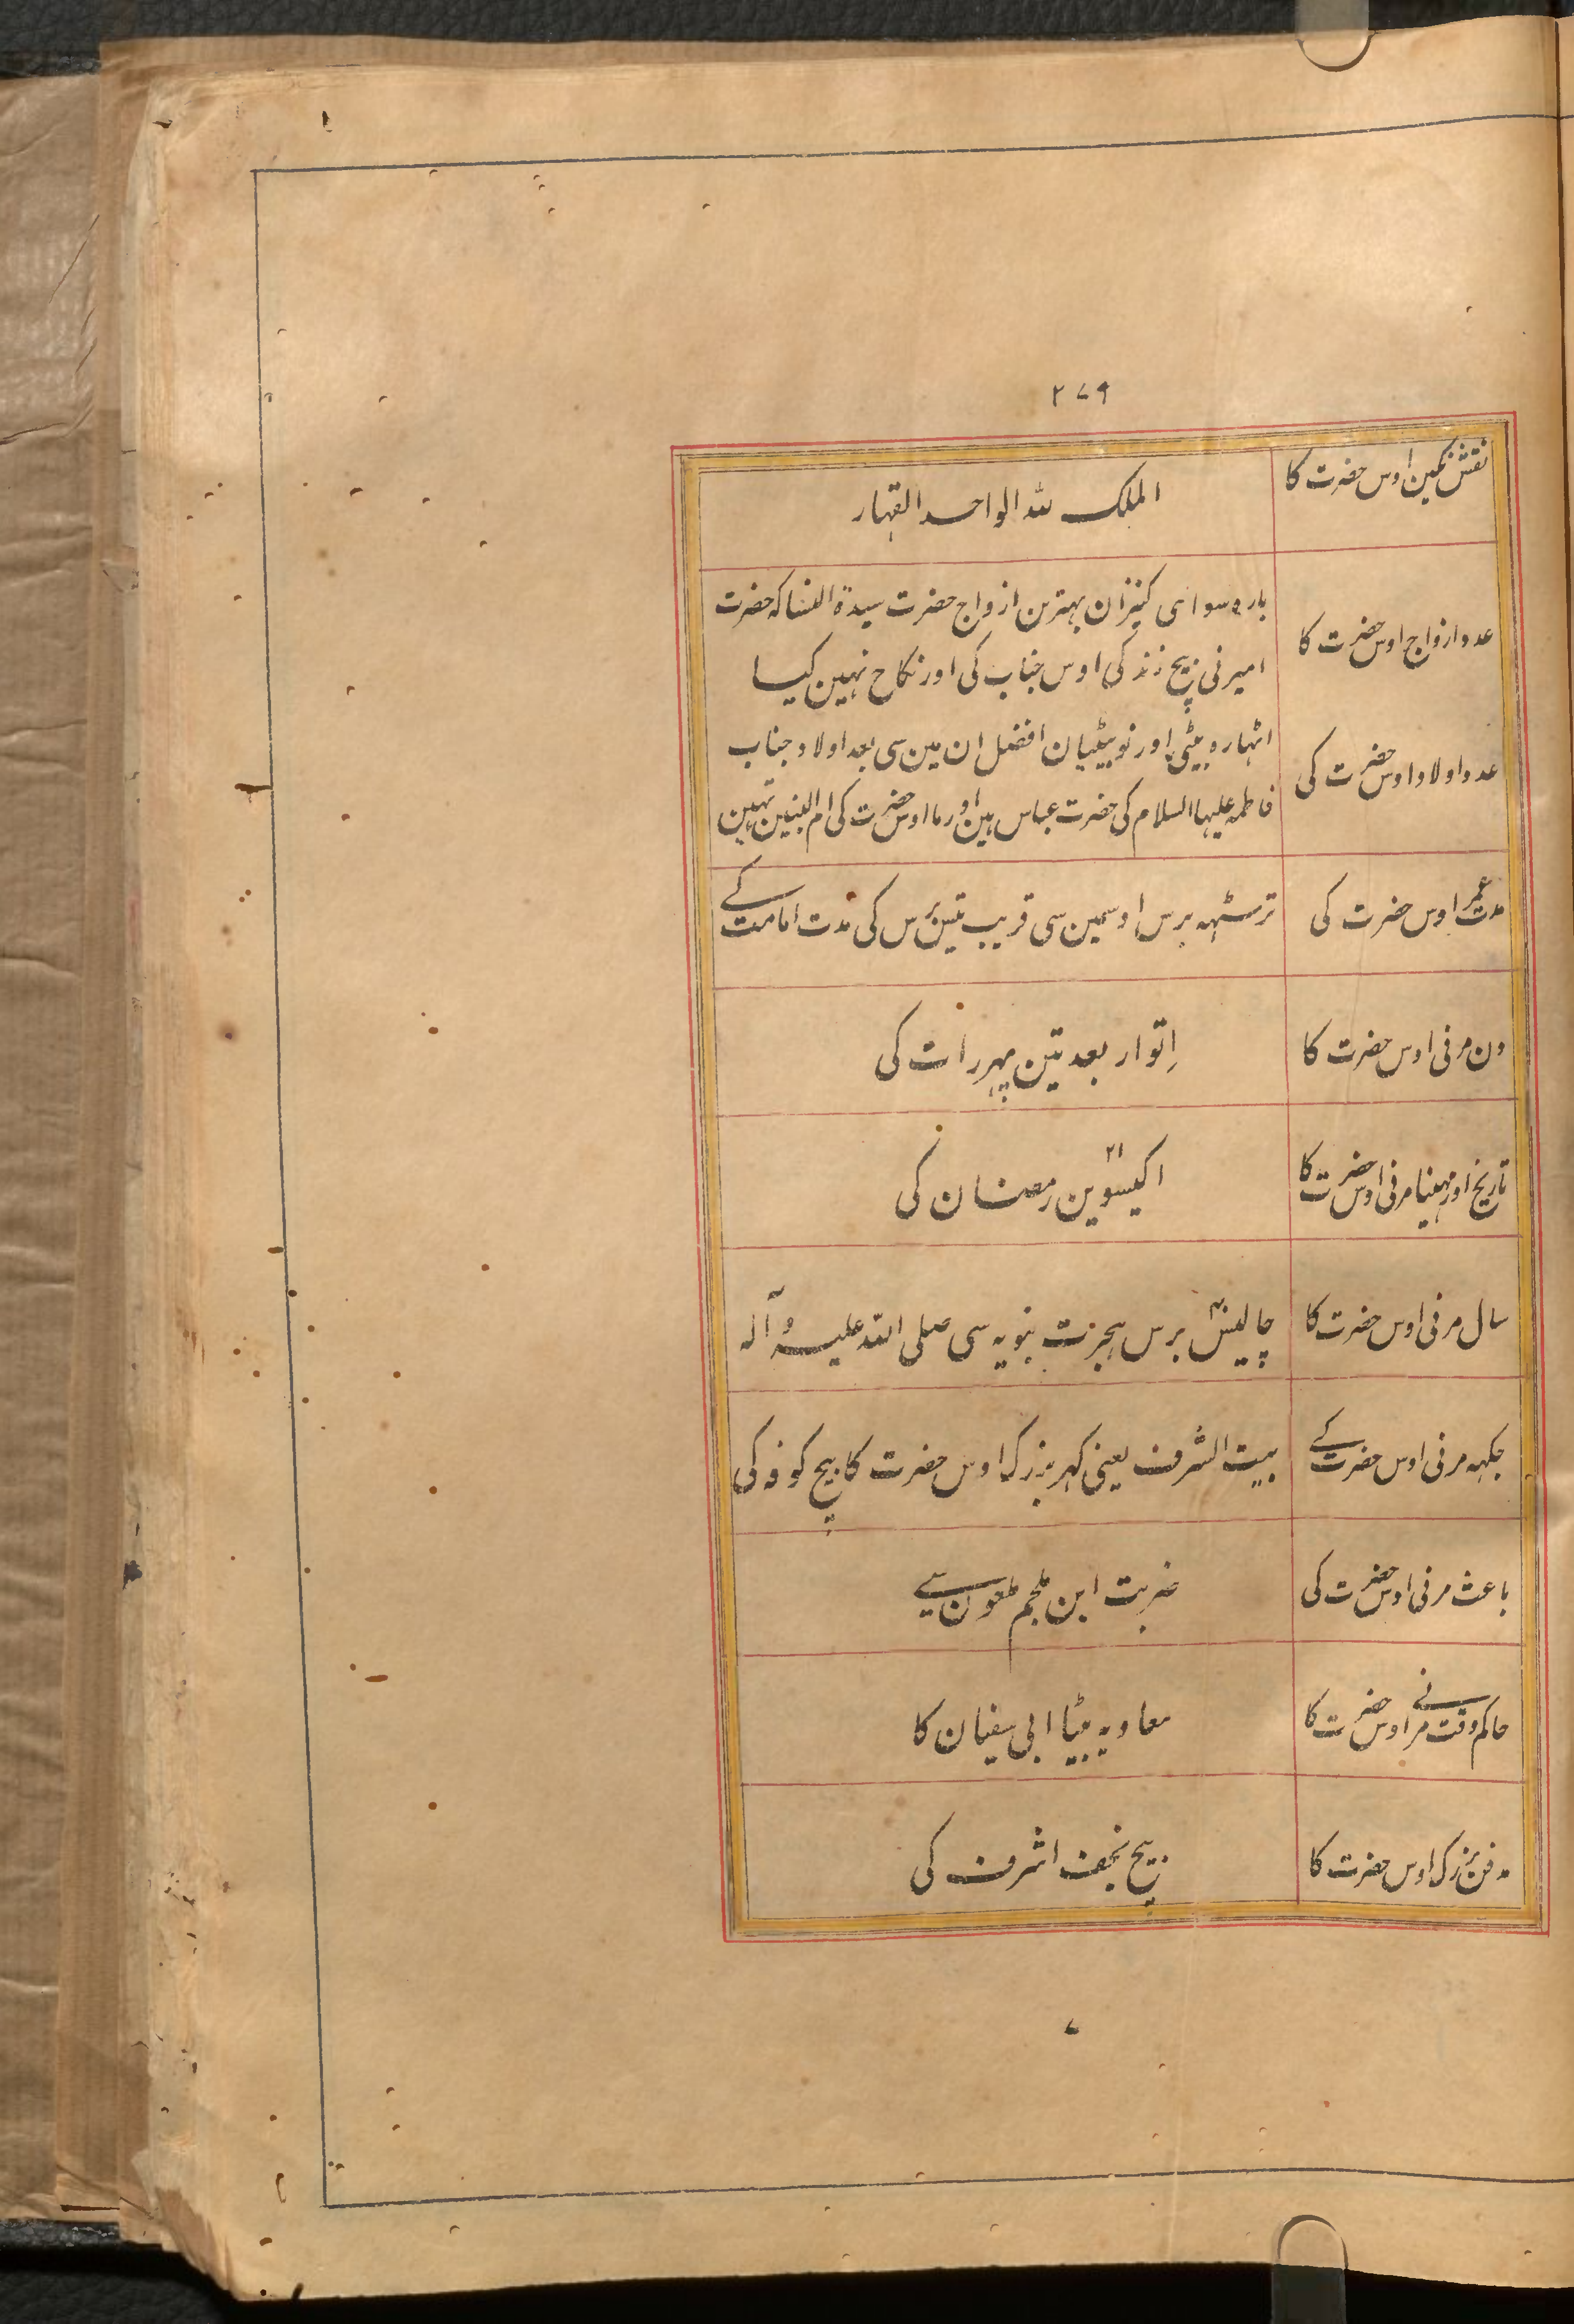 ۲۷۹
نقش نگین اوس حضرت کا
الملک للہ الواحد القہار
عدد ازواج اوس حضرت کا
بارہ سوای کنیزان بہترین ازواج حضرت سیدۃ النسا کہ حضرت
امیر نی بیچ زندکی اوس جناب کی اور نکاح نہین کیا
عدد اولاد اوس حضرت کی
اٹہارہ بیٹی اور نو بیٹیان افضل ان مین سی بعد اولاد جناب
فاطمہ علیہا السلام کی حضرت عباس ہین اور ما اوس حضرت کی ام البنین تہین
مدت عمر اوس حضرت کی
ترسٹہہ برس اوسمین سی قریب تیس برس کی مدت امامت کے
دن مرنی اوس حضرت کا
اِتوار بعد تین پہر رات کی
تاریخ اور مہینا مرنی اوس حضرت کا
اکیسوین ۲۱ رمضان کی
سال مرنی اوس حضرت کا
چالیس برس ہجرت نبویہ سی صلی اللہ علیہ وآلہ
جکہہ مرنی اوس حضرت کے
بیت الشرف یعنی کہر بزرک اوس حضرت کا بیچ کوفہ کی
باعث مرنی اوس حضرت کی
ضربت ابن ملجم ملعون سے
حاکم وقت مرنے اوس حضرت کا
معاویہ بیٹا ابی سفیان کا
مدفن بزرک اوس حضرت کا
بیچ نجف اشرف کی
۷